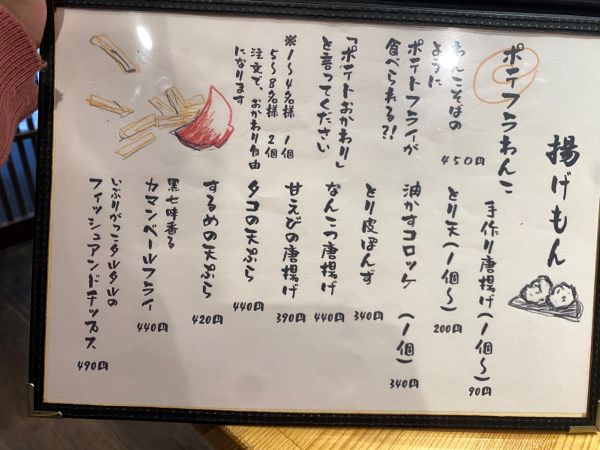 揚げもん
ポテフラわんこ
わんこそばの
ように
ポテトフライが
食べられる?!
450円
「ポテトおかわり」
と言ってください
※1~4名様 1個
5~8名様 2個
注文で、おかわり自由
になります
手作り唐揚げ(1個~)
90円
とり天(1個~)
200円
油かすコロッケ(1個)
340円
とり皮ぽんず
340円
なんこつ唐揚げ
440円
甘えびの唐揚げ
390円
タコの天ぷら
440円
するめの天ぷら
420円
黒七味香る
カマンベールフライ
440円
いぶりがっこタルタルの
フィッシュアンドチップス
490円